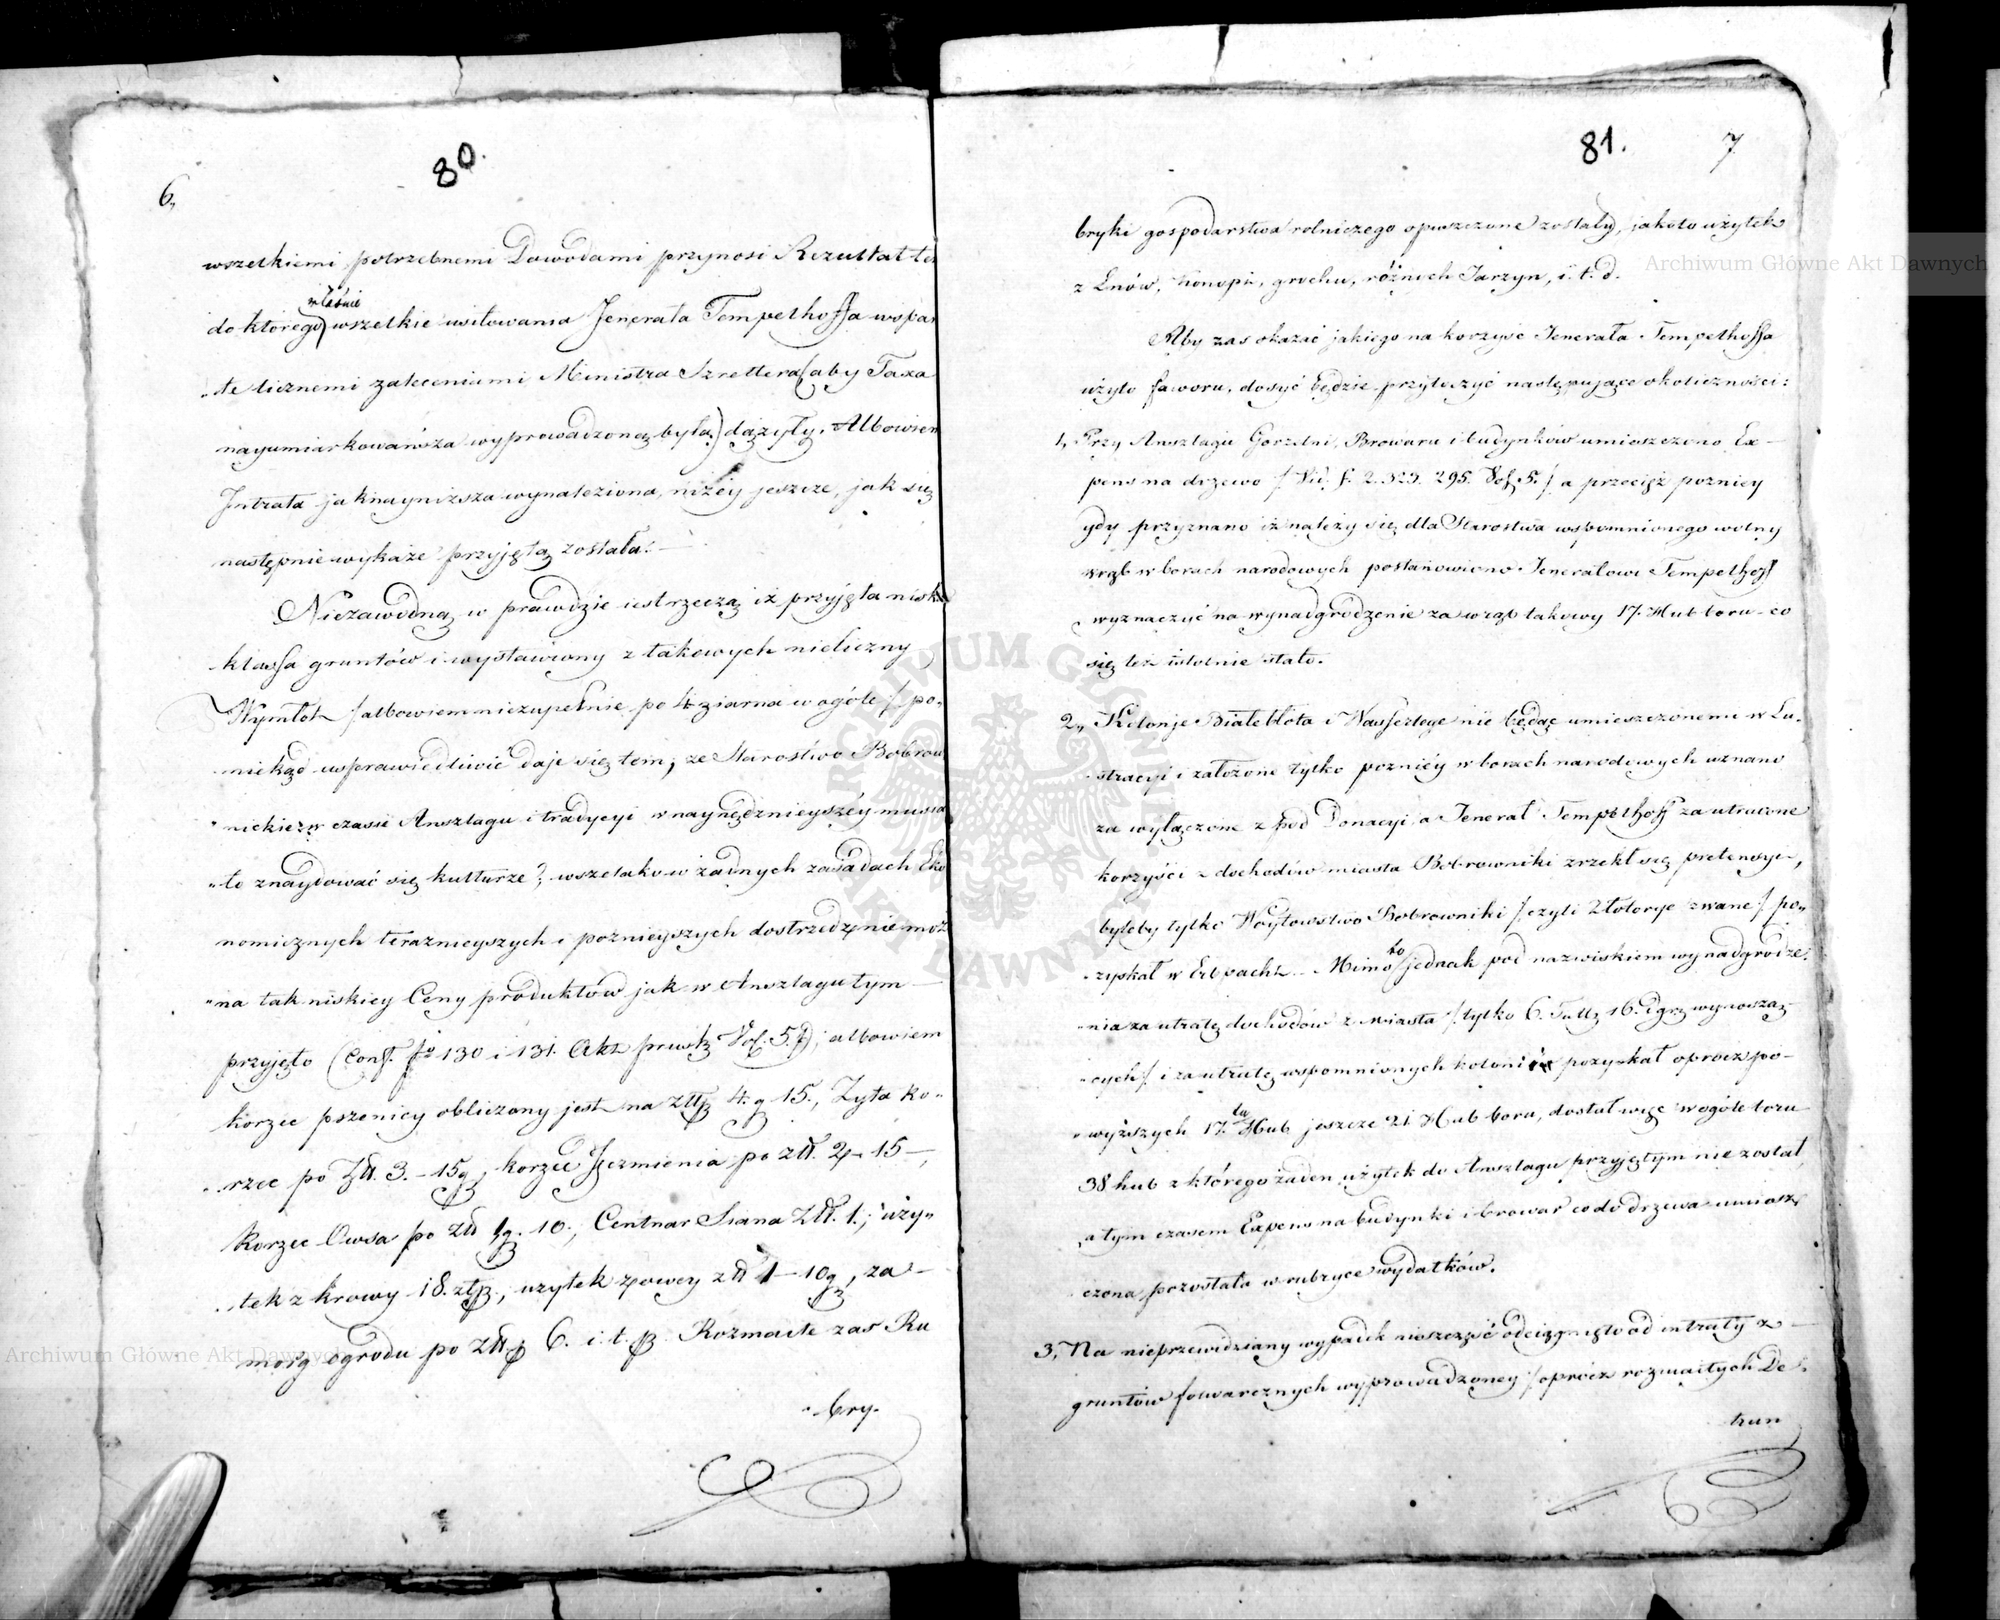 80.
6,
wszelkiemi potrzebnemi Dowodami przynosi Rezultat te
właśnie
do którego wszelkie usiłowania Jenerała Tempelhoffa wspar
te licznemi zaleceniami Ministra Szrettera (aby Taxa
nayumiarkowańsza wyprowadzoną była) dążyły. Albowiem
Intrata jaknayniższa wynaleziona, niżéy jeszcze, jak się
następnie wykaże przyjętą została. —
Niezawodną w prawdzie jest rzeczą iż przyjęta niska
klassa gruntów i wystawiony z takowych nieliczny
Wymłot / albowiem niezupełnie po 4 ziarna w ogóle / po„
niekąd usprawiedliwić daje się tem, że Starostwo Bobrow
nickie w czasie Anszlagu i tradycyi w naynędznieyszéy musia
„ło znaydować się kulturze; wszelako w żadnych zasadach Eko
nomicznych teraznieyszych i poźnieyszych dostrzedz nie moż
„na tak niskiey Ceny produktów jak w Anszlagu tym —
przyjęto (Conf. fo 130 i 131. Akt prusk. Vol. 5.); albowiem
korzec pszenicy obliczony jest na złł. 4. g 15., Żyta ko„
rzec po Złł. 3. — 15 g, korzec Jęczmienia po złł. 2 — 15 —,
Korzec Owsa po złł 1 g. 10., Centnar Siana Złł. 1.; uży„
tek z krowy 18. złł., użytek z owcy złł 1 — 10 g, za —
morg ogrodu po złł. 6. i. t. p. Rozmaite zaś Ru
bry.
81.
7
bryki gospodarstwa rolniczego opuszczone zostały, jakoto użytek
z Lnów, Konopi, grochu, różnych Jarzyn, i. t. d.
Aby zaś okazać jakiego na korzyść Jenerała Tempelhoffa
użyto faworu, dosyć będzie przytoczyć następujące okoliczności:
1, Przy Anszlagu Gorzelni, Browaru i budynków umieszczono Ex—
pens na drzewo / Vid. f. 2. 323. 295. Vol. 5. / a przecięż poźniey
gdy przyznano iż należy się dla Starostwa wspomnionego wolny
wrąb w borach narodowych postanowiono Jenerałowi Tempelhoff
wyznaczyć na wynadgrodzenie za wrąb takowy 17. Hub boru — co
się też istotnie stało.
2„ Kolonje Białebłota i Wasserlege nie będąc umieszczonemi w Lu„
stracyi i założone tylko poźniéy w borach narodowych uznano
za wyłączone z pod Donacyi a Jenerał Tempelhoff za utracone
korzyści z dochodów miasta Bobrowniki zrzekł się pretensyi,
byleby tylko Woytowstwo Bobrowniki / czyli Złotorye zwane / po„
zyskał w Erbpacht. Mimo to jednak pod nazwiskiem wynadgrodze„
„nia za utratę dochodów z miasta / tylko 6. Tall. 16. dgr. wynoszą„
„cych / i za utratę wspomnionych kolonii pozyskał oprócz po—
„wyższych 17.tu Hub jeszcze 21 Hub boru, dostał więc w ogóle boru
38 hub z którego żaden użytek do Anszlagu przyjętym nie został,
a tym czasem Expens na budynki i browar co do drzewa umiesz„
czona pozostała w rubryce wydatków.
3, Na nieprzewidziany wypadek nieszczęść odciągnięto od intraty z —
gruntów folwarcznych wyprowadzoney / oprócz rozmaitych De„
trun